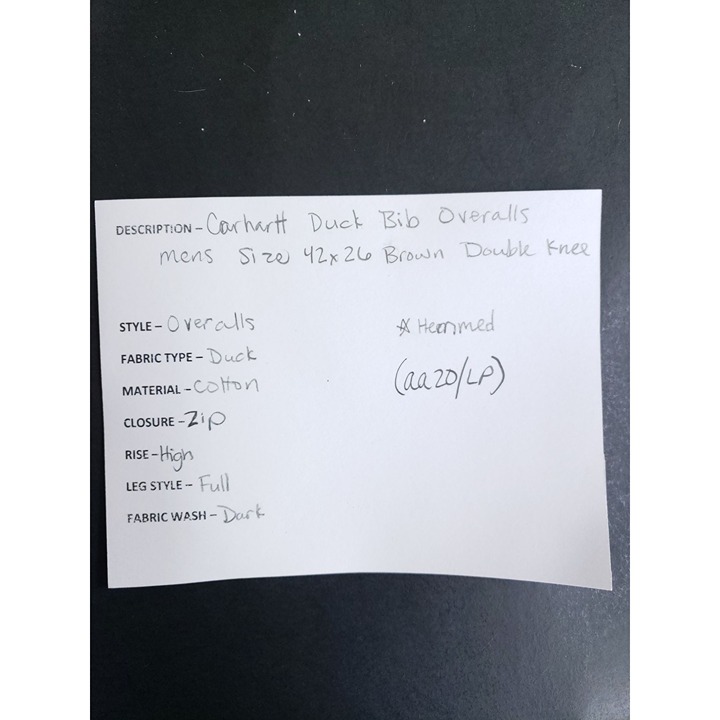 DESCRIPTION - Carhartt Duck Bib Overalls
mens Size 42x26 Brown Double Knee
STYLE - Overalls
☆ Hemmed
FABRIC TYPE - Duck
(aa20/LP)
MATERIAL - Cotton
CLOSURE - Zip
RISE - High
LEG STYLE - Full
FABRIC WASH - Dark